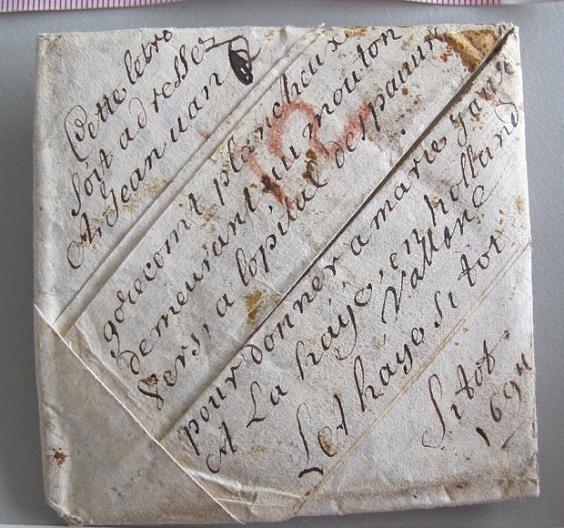 Cette letre
soit adresse
A Jean uan
gorecomt plancheux
demeurant au mouton
vers, a lopital des pauure
pour donner a marie
A La haye, en holland
vallone
Let haye si tot
Si tot
1694